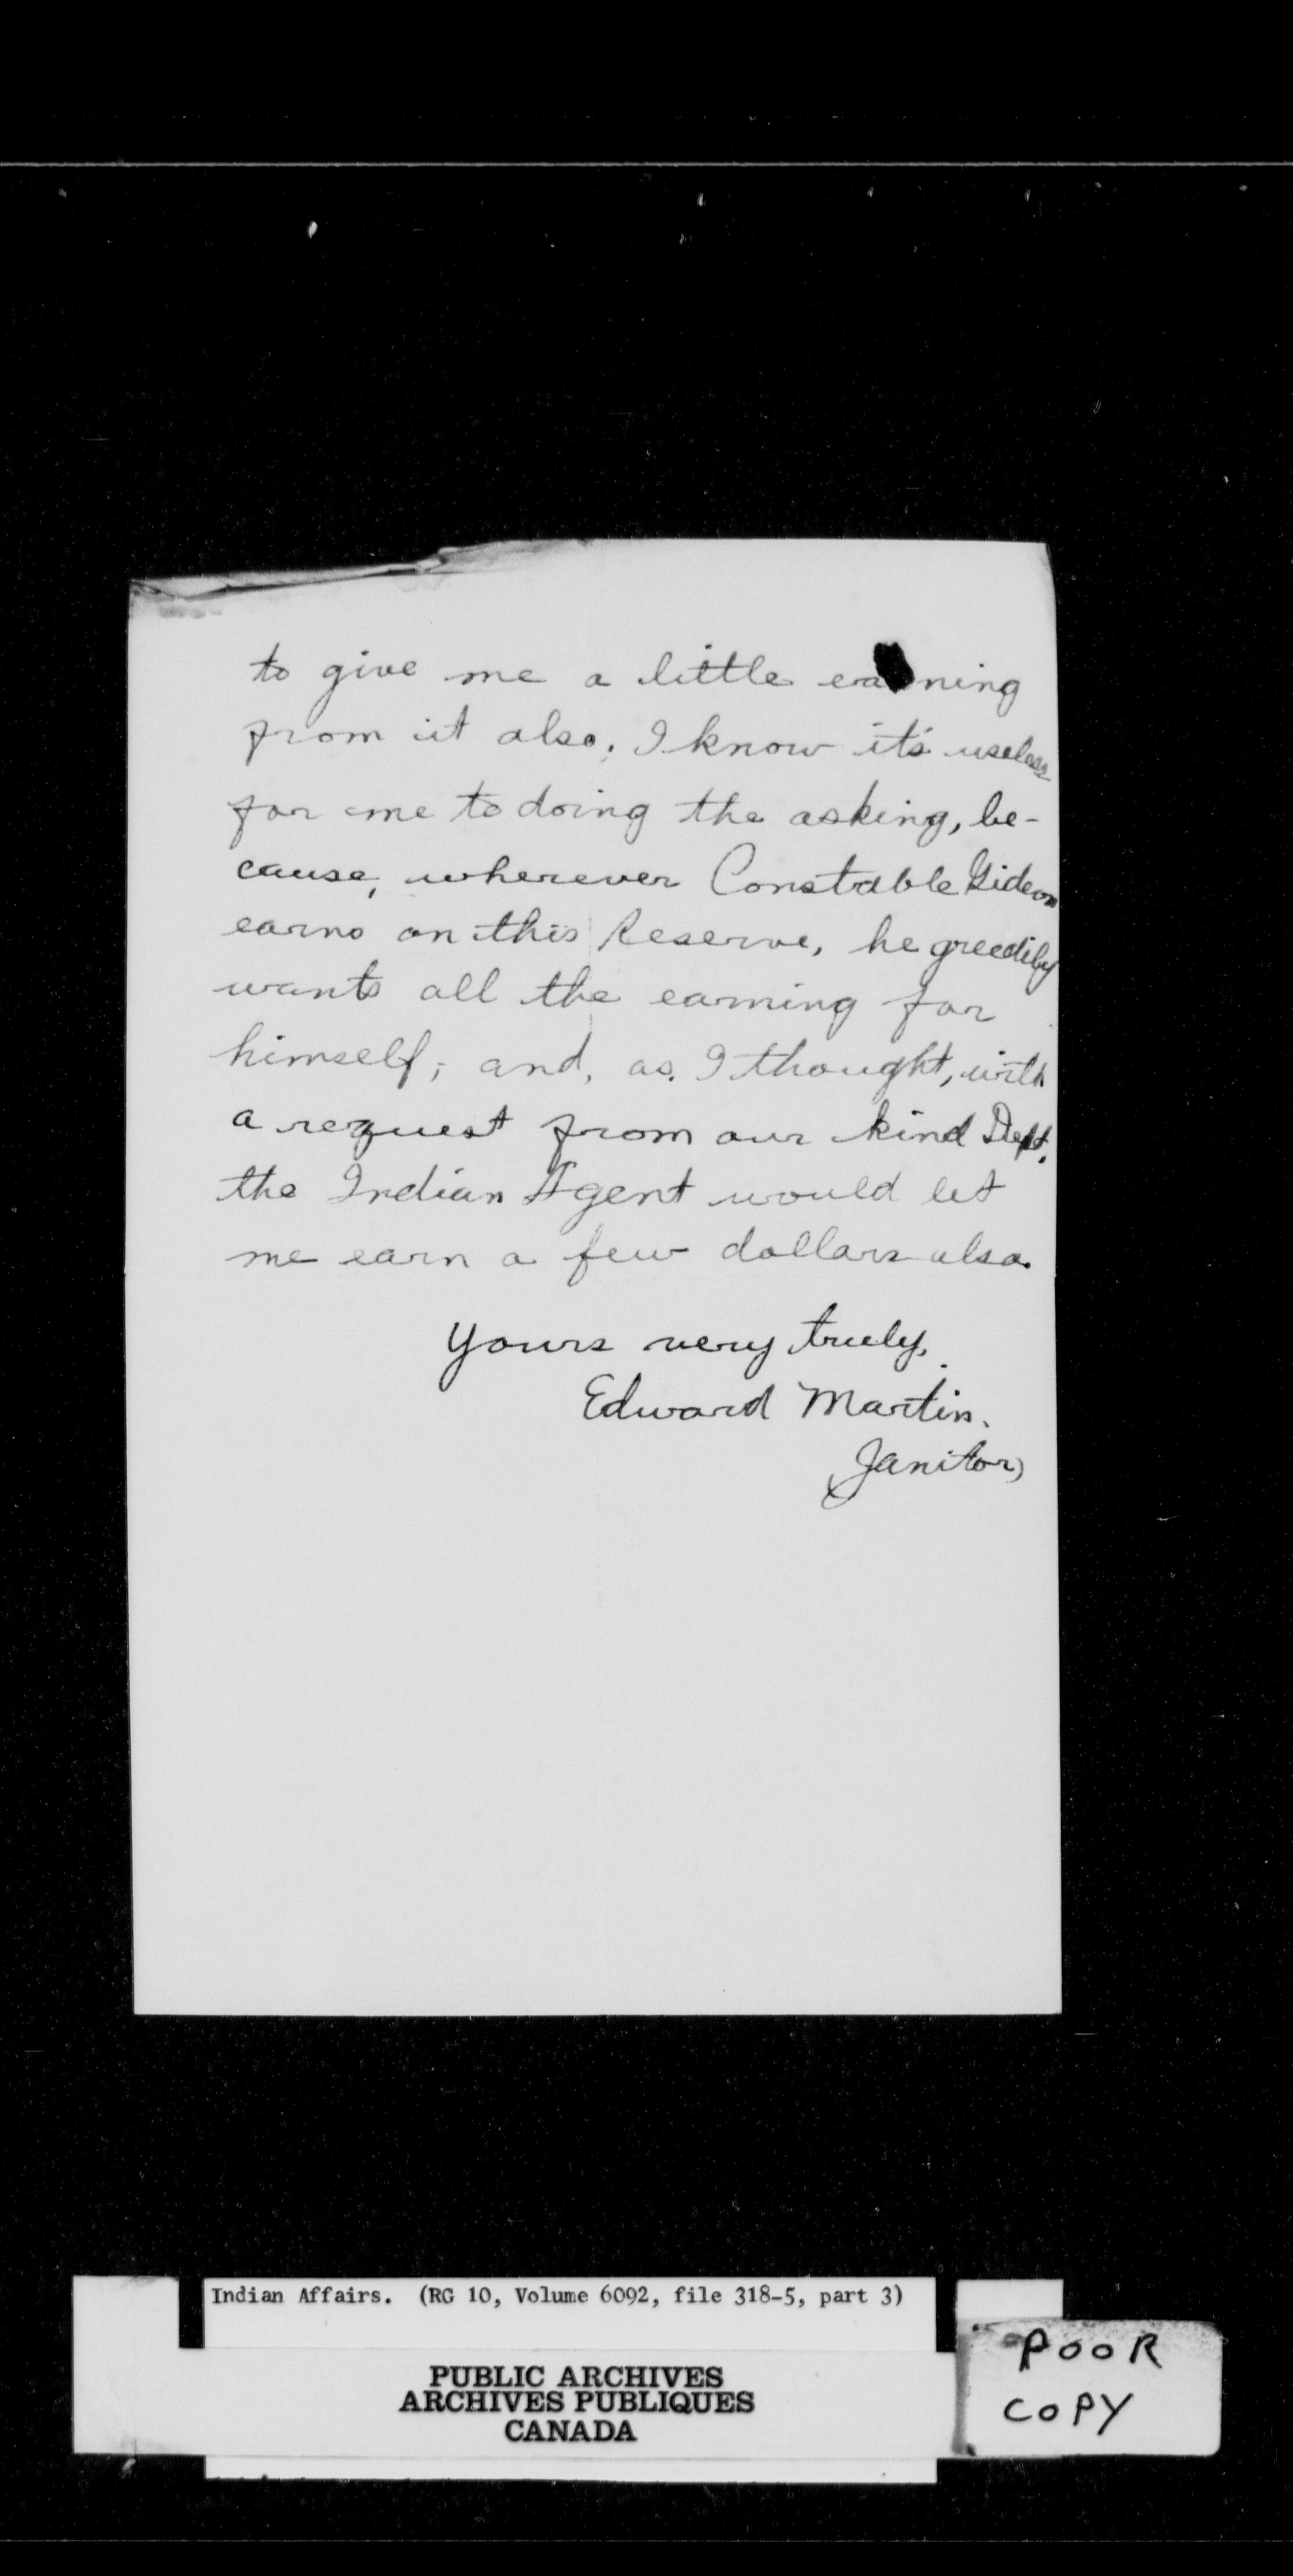 to give me a little earning
from it also. I know it's useless
for me to doing the asking, be-
cause, wherever Constable Gideon
earns on this Reserve, he greedily
wants all the earning for
himself; and, as I thought, with
a request from our kind Dept.
the Indian Agent would let
me earn a few dollars also.
Yours very truly,
Edward Martin.
(Janitor)
Indian Affairs. (RG 10, Volume 6092, file 318-5, part 3)
PUBLIC ARCHIVES
ARCHIVES PUBLIQUES
CANADA
POOR
COPY